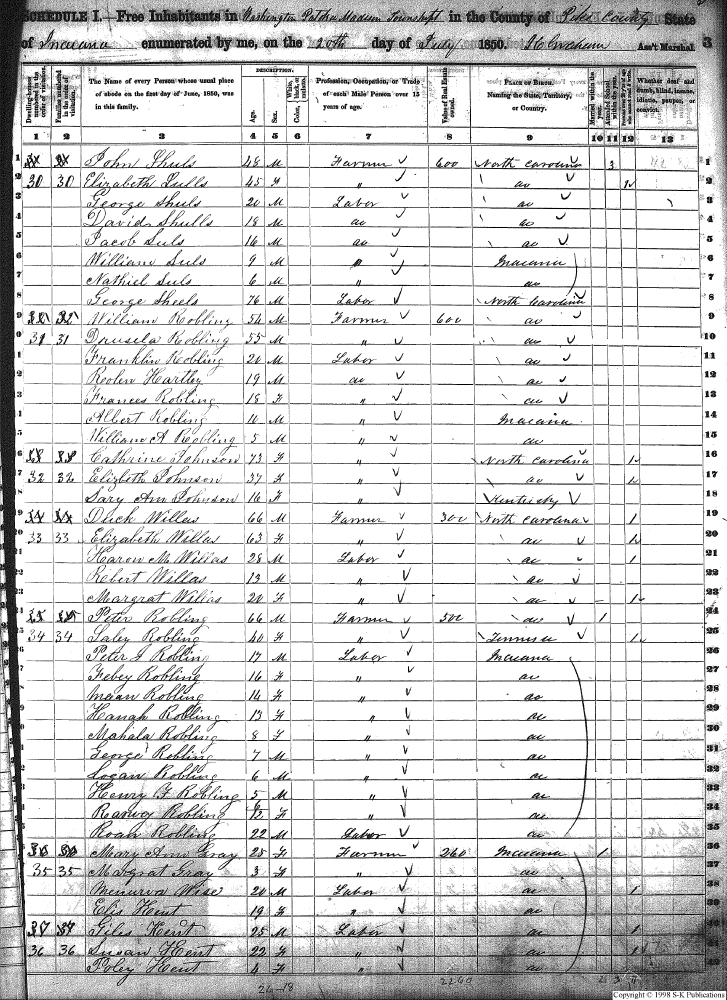 SCHEDULE I.—Free Inhabitants in Washington Township in the County of Pike County State
of Indiana enumerated by me, on the 20th day of July 1850. Ass't Marshal 3
Dwelling-houses numbered in the order of visitation.
Families numbered in the order of visitation.
The Name of every Person whose usual place of abode on the first day of June, 1850, was in this family.
DESCRIPTION.
Age.
Sex.
Color, White, black, or mulatto.
Profession, Occupation, or Trade of each Male Person over 15 years of age.
Value of Real Estate owned.
PLACE OF BIRTH. Naming the State, Territory, or Country.
Married within the year.
Whether deaf and dumb, blind, insane, idiotic, pauper, or convict.
1 2 3 4 5 6 7 8 9 10 11 12 13
1 John Shuls 48 M Farmer 600 North Carolina 3 1
2 30 30 Elizabeth Sulls 45 F " do 1 2
3 George Shuls 20 M Labor do 3
4 David Shulls 18 M do do 4
5 Jacob Suls 16 M do do 5
6 William Suls 9 M " Indiana 6
7 Nathiel Suls 6 M " do 7
8 George Sheels 76 M Labor North Carolina 8
9 William Robling 54 M Farmer 600 do 9
10 31 31 Drusela Robling 55 M " do 10
11 Franklin Robling 20 M Labor do 11
12 Hartley 19 M do do 12
13 Frances Robling 18 F " do 13
14 Albert Robling 10 M " Indiana 14
15 William A Robling 5 M " do 15
16 Cathrine Johnson 73 F " North Carolina 1 16
17 32 32 Elizbeth Johnson 37 F " do 1 17
18 Sary Ann Johnson 16 F " Kentucky 18
19 Duck Willas 66 M Farmer 300 North Carolina 1 19
20 33 33 Elizabeth Willas 63 F " do 1 20
21 Willas 28 M Labor do 1 21
22 Rebert Willas 13 M " do 22
23 Margrat Willas 20 F " do 1 23
24 Peter Robling 66 M Farmer 500 do 1 24
25 34 34 Saley Robling 40 F " Tennisee 1 25
26 Peter J Robling 17 M Labor Indiana 26
27 Febey Robling 16 F " do 27
28 Robling 14 F " do 28
29 Hanah Robling 13 F " do 29
30 Mahala Robling 8 F " do 30
31 George Robling 7 M " do 31
32 Logan Robling 6 M " do 32
33 Henry F Robling 5 M " do 33
34 Robling F " do 34
35 Roah Robling 22 M Labor do 35
36 Mary Ann Gray 25 F Farmer 260 Indiana 1 36
37 35 35 Margrat Gray 3 F " do 37
38 Menurva Wise 20 M Labor do 1 38
39 Elis Kent 19 F " do 39
40 Giles Kent 25 M Labor do 1 40
41 36 36 Susan Kent 22 F " do 1 41
42 Poley Kent 4 F " do 42
2260
Copyright © 1998 S-K Publications